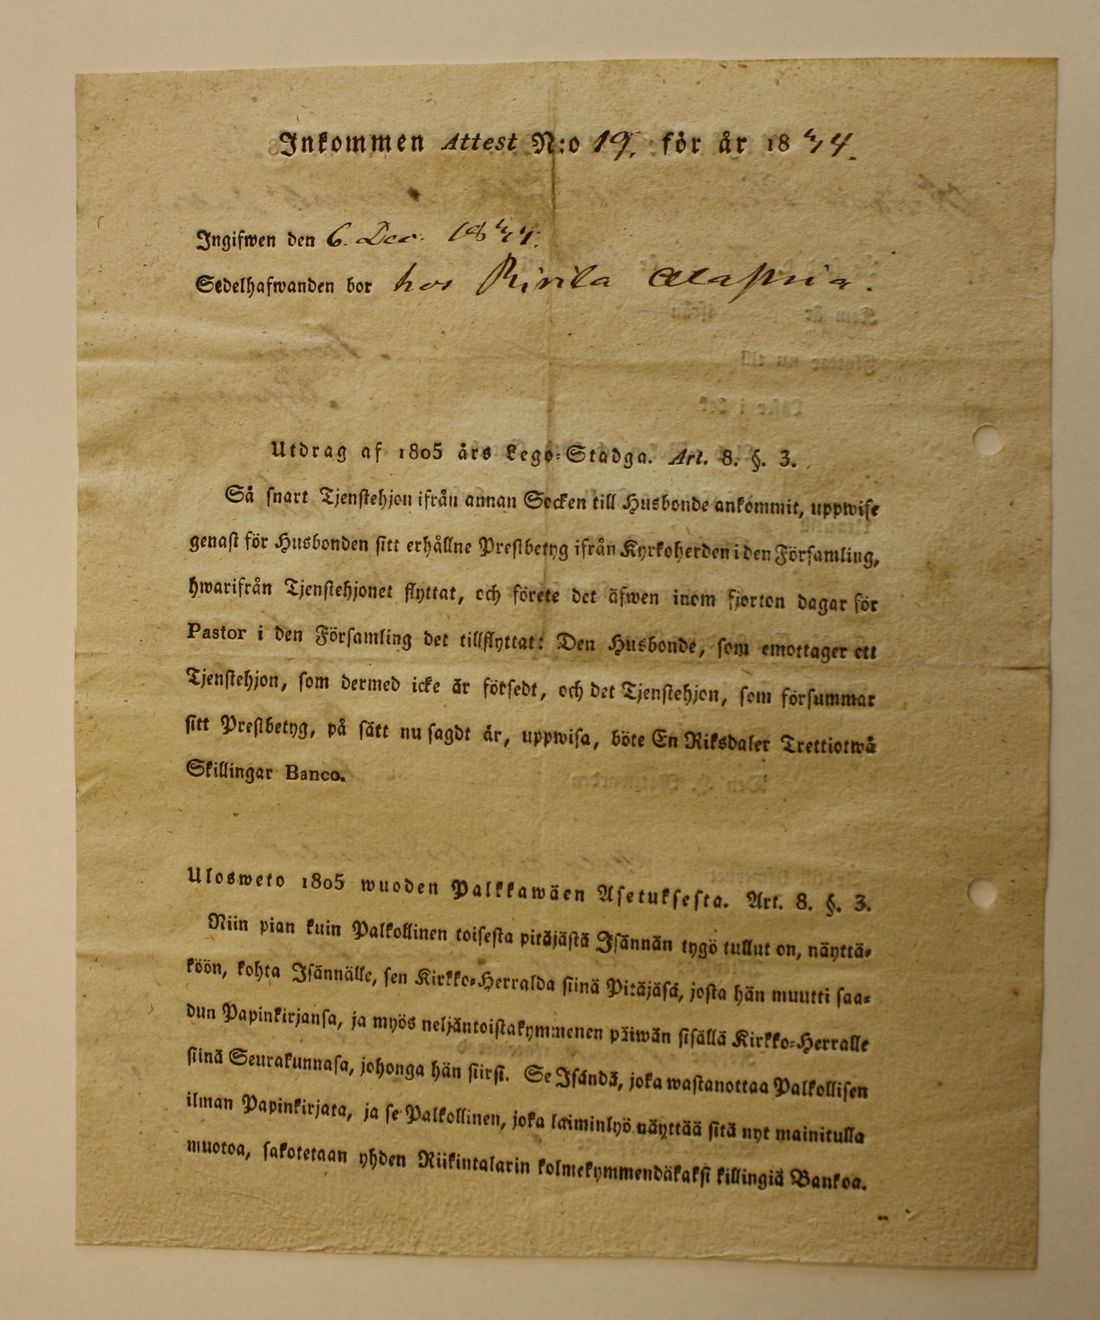 Inkommen Attest N:o 19. för år 1844.
Ingifwen den 6. Dec. 1844.
Sedelhafwanden bor hos
Utdrag af 1805 års Lego-Stadga. Art. 8. §. 3.
Så snart Tjenstehjon ifrån annan Socken till Husbonde ankommit, uppwise
genast för Husbonden sitt erhållne Prestbetyg ifrån Kyrkoherden i den Församling,
hwarifrån Tjenstehjonet flyttat, och förete det äfwen inom fjorton dagar för
Pastor i den Församling det tillflyttat: Den Husbonde, som emottager ett
Tjenstehjon, som dermed icke är försedt, och det Tjenstehjon, som försummar
sitt Prestbetyg, på sätt nu sagdt är, uppwisa, böte En Riksdaler Trettiotwå
Skillingar Banco.
Ulosweto 1805 wuoden Palkkawäen Asetuksesta. Art. 8. §. 3.
Niin pian kuin Palkollinen toisesta pitäjästä Isännän tygö tullut on, näyttä-
köön, kohta Isännälle, sen Kirkko-Herralda siinä Pitäjäsä, josta hän muutti saa-
dun Papinkirjansa, ja myös neljäntoistakymmenen päiwän sisällä Kirkko-Herralle
siinä Seurakunnasa, johonga hän siirsi. Se Isändä, joka wastanottaa Palkollisen
ilman Papinkirjata, ja se Palkollinen, joka laiminlyö näyttää sitä nyt mainitulla
muotoa, sakotetaan yhden Riikintalarin kolmekymmendäkaksi killingiä Bankoa.